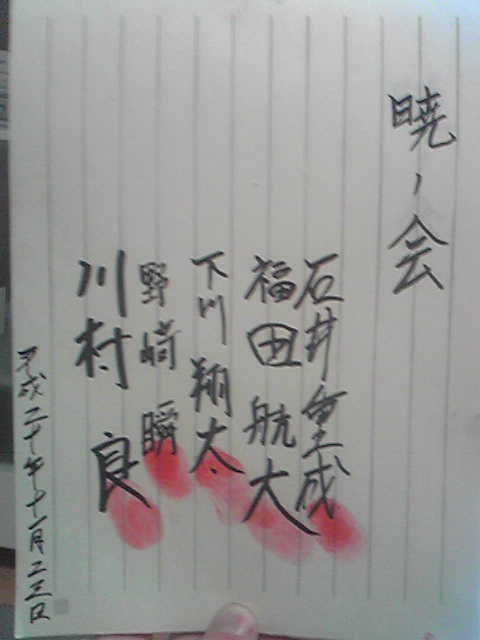 暁ノ会
石井皇成
福田航大
下川翔太
野崎瞬
川村良
平成二十年十一月二三日